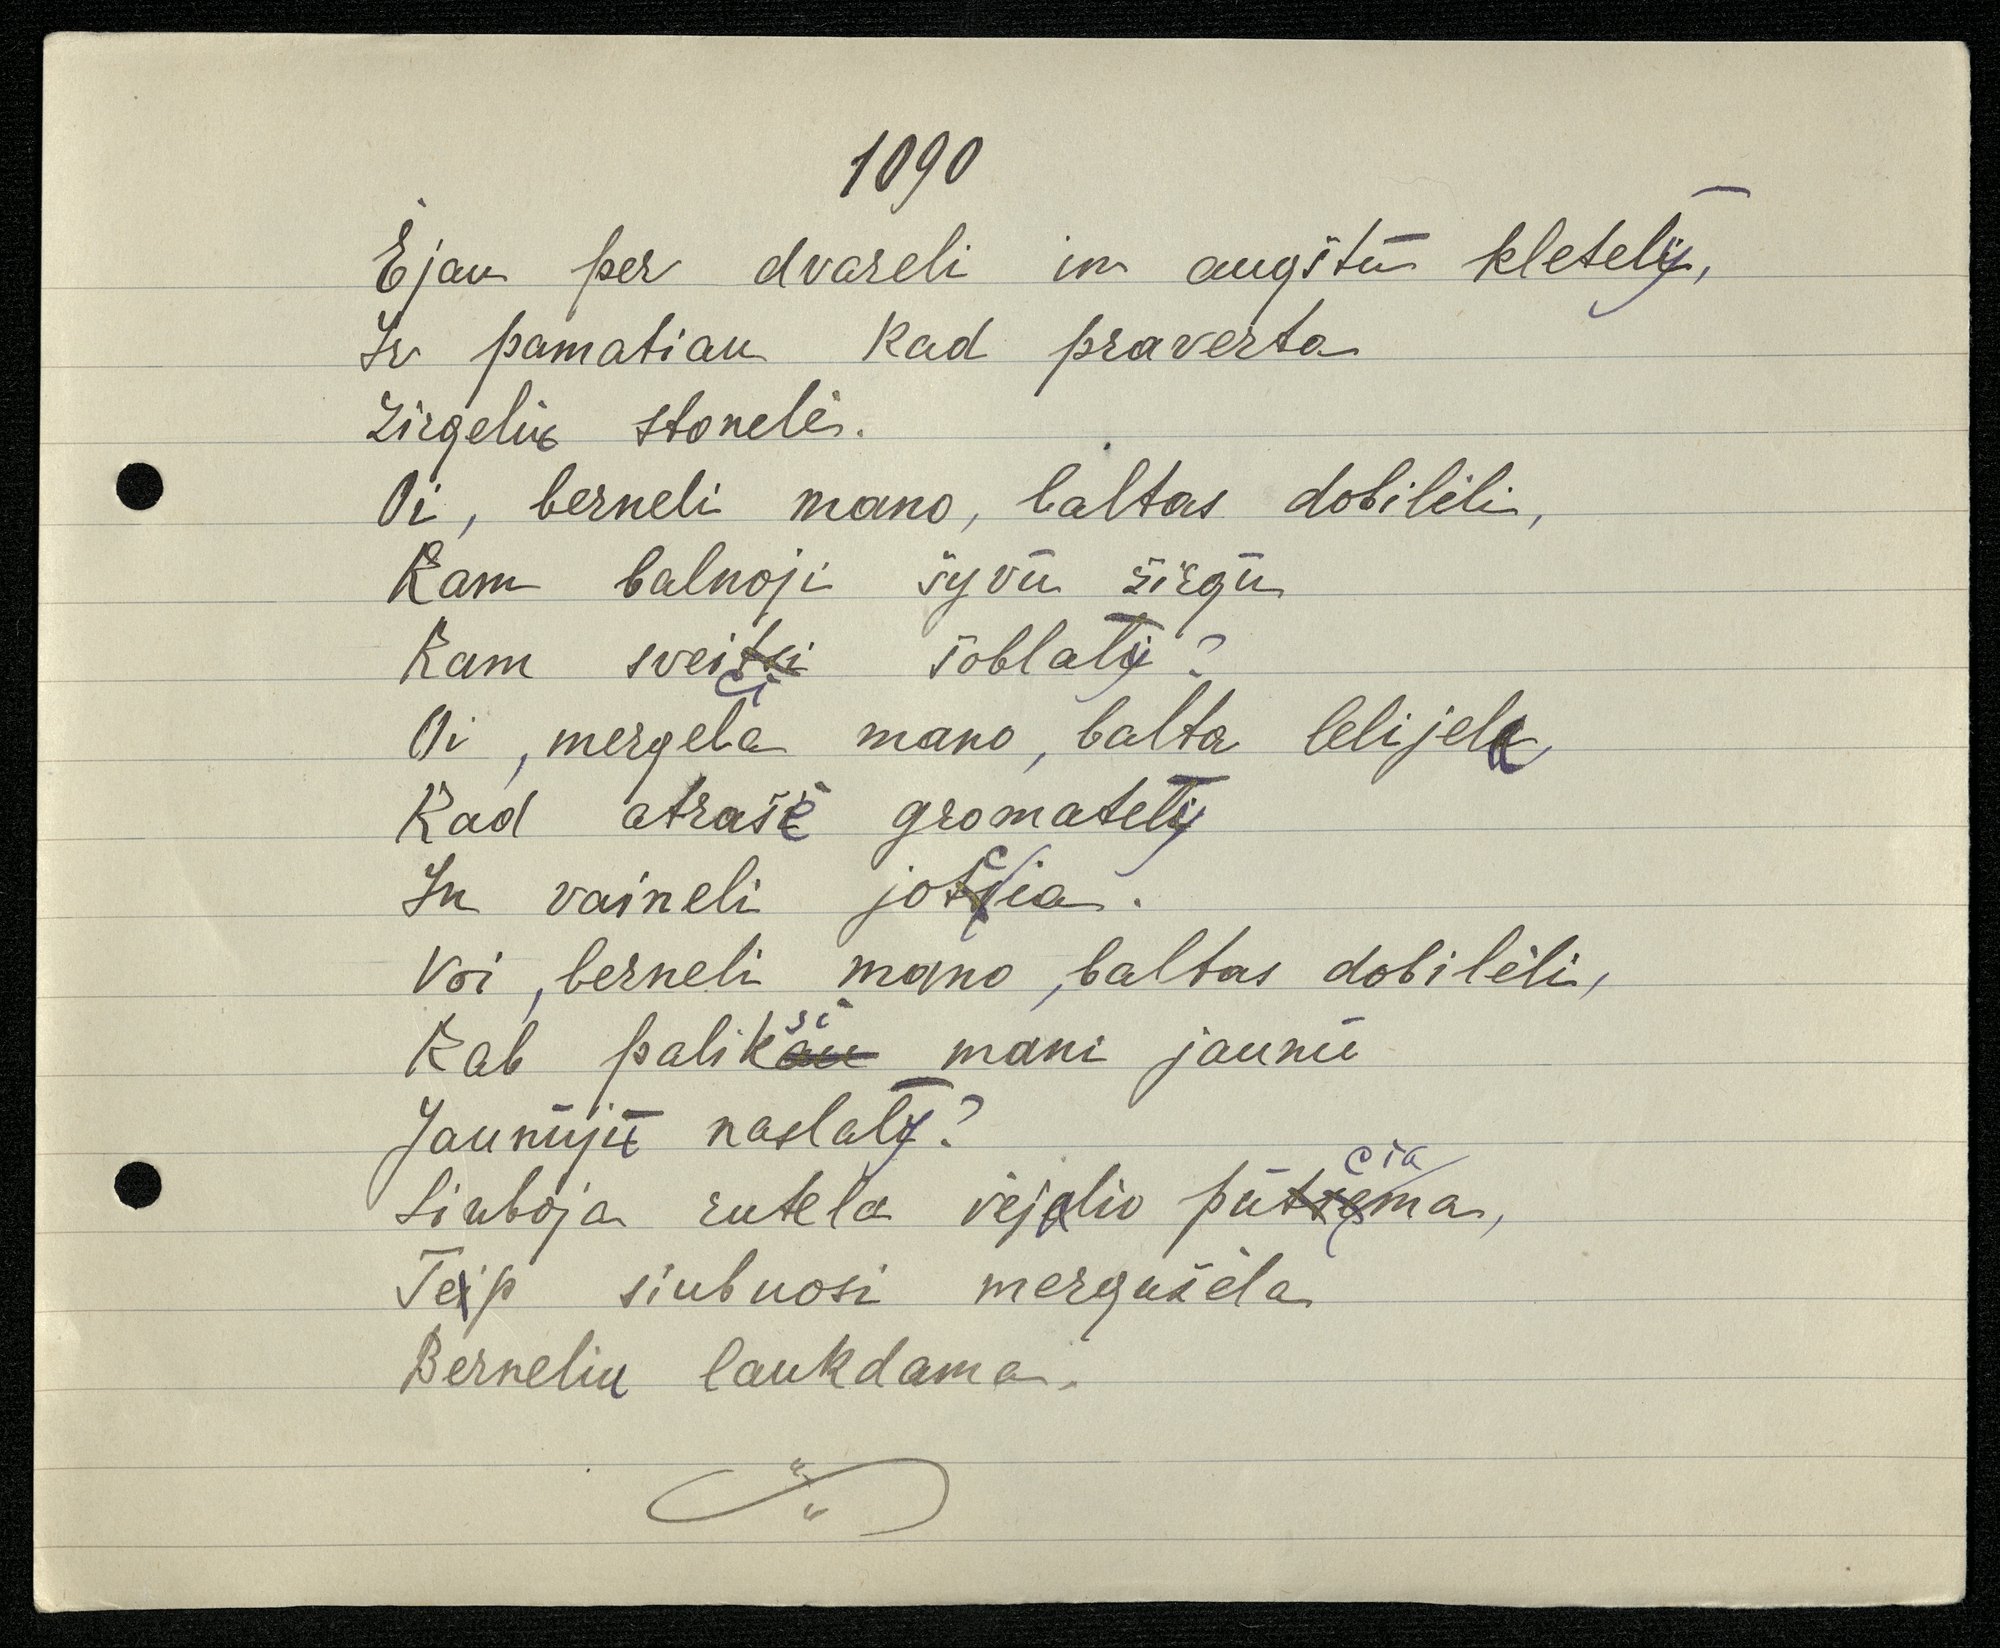 1090
Ėjau per dvareli in augštū kletelȳ,
Ir pamatiau kad praverta
Žirgelie stonelė.
Oi, berneli mano, baltas dobilėli,
Kam balnoji šyvū žirgū
Kam sveiči šoblalȳ?
Oi, mergela mano, balta lelijela,
Kad atrašė gromatelȳ
In vaineli jocia.
Voi, berneli mano, baltas dobilėli,
Kab paliksi mani jaunū
Jaunūjū naslalȳ?
Siuboja rutela vėjalio pūciama,
Teip siubuosi mergužėla
Berneliu laukdama.